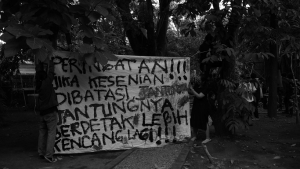 PERINGATAN!!!
JIKA KESENIAN
DIBATASI JANTUNG
JANTUNGNYA
BERDETAK LEBIH
KENCANG LAGI!!!